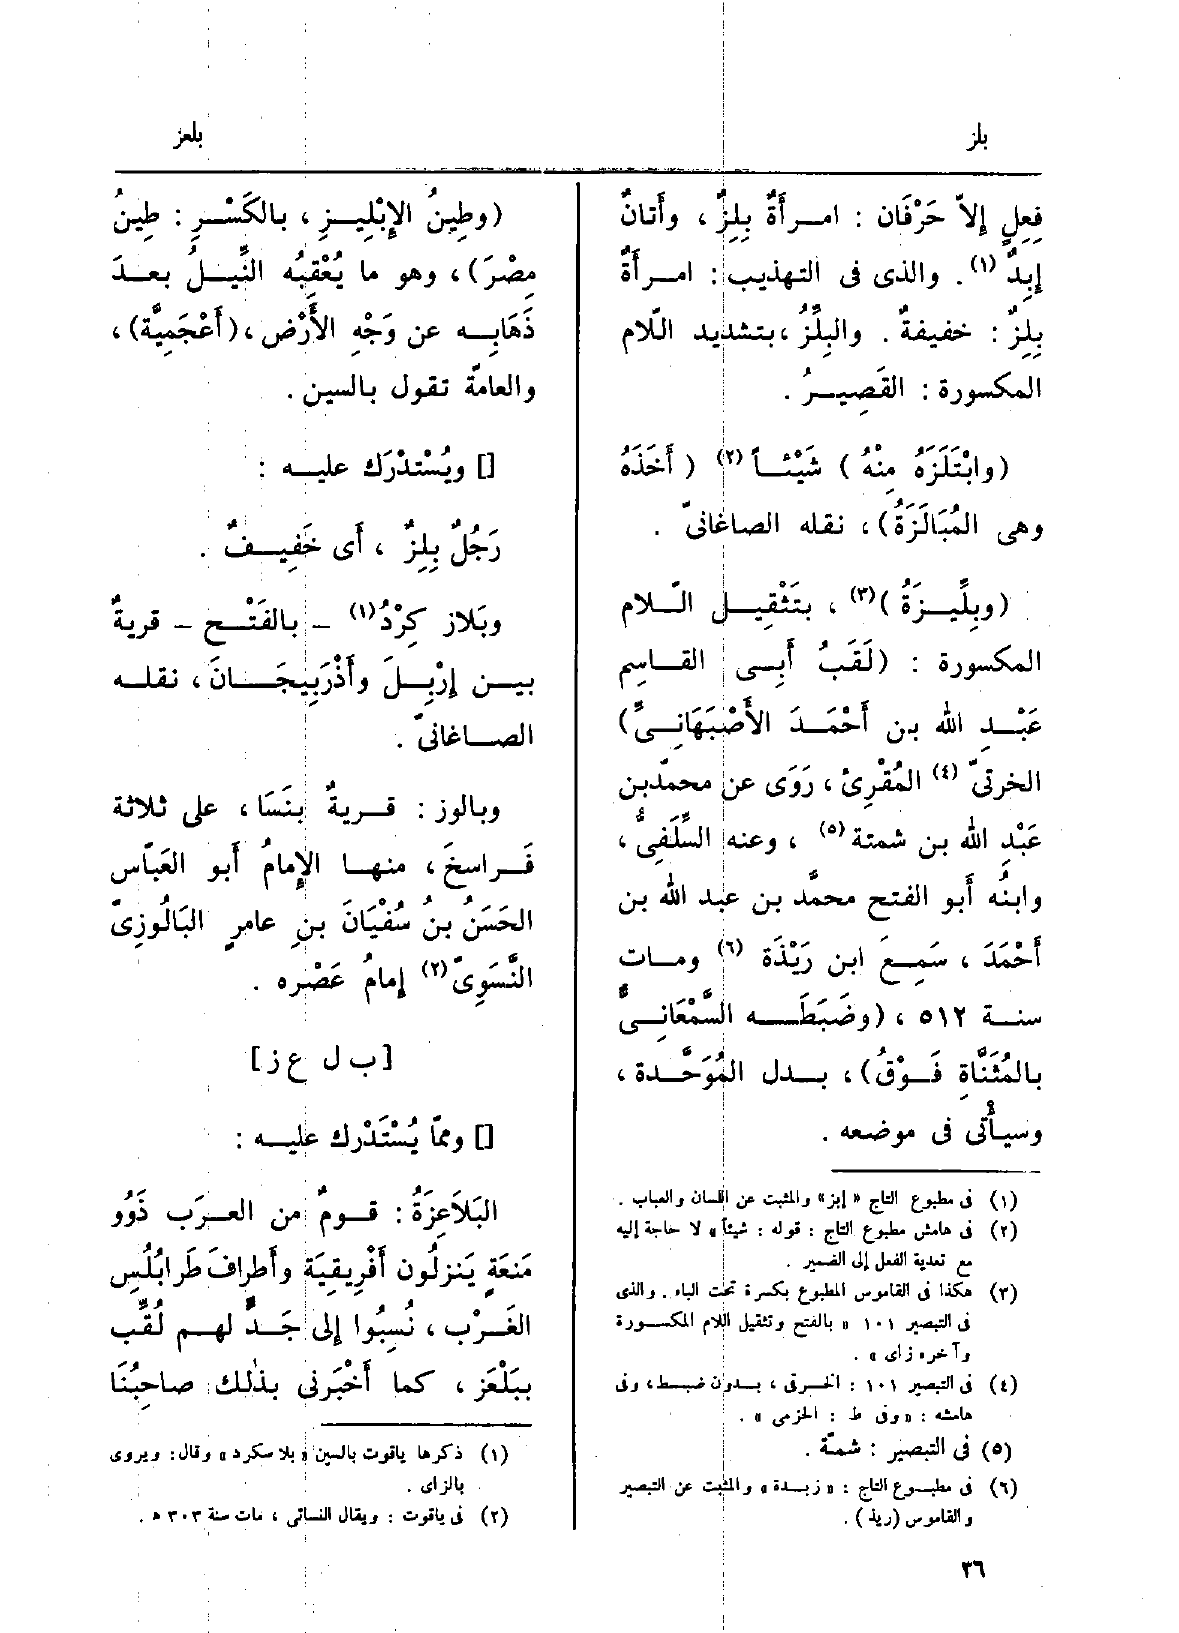 بلز
بلعز
فِعِلٍ إلاّ حَرْفَان : امـرأَةٌ بِلِزٌ ، وأَتانٌ
إبِدٌ (١). والذى فى التهذيب : امـرأَةٌ
بِلِزٌ : خفيفةٌ . والبِلِّزُ ،بتشديد اللّام
المكسورة : القَصِيـرُ .
(وابْتَلَزَهُ مِنْهُ ) شَيْئـاً (٢) ( أَخَذَهُ
وهى المُبَالَزَةُ)، نقله الصاغانىّ .
(وبِلِّيـزَةُ )(٣) ، بتَثْقِيـل الـلّام
المكسورة : (لَقَبُ أَبـى القـاسِم
عَبْـدِ الله بـن أَحْمَـدَ الأَصْبَهَانِـىِّ)
الخرتىّ (٤) المُقْرِئ ، رَوَى عن محمّدبن
عَبْدِ الله بن شمتة (٥) ، وعنه السِّلَفِىُّ ،
وابنُه أَبو الفتح محمّد بن عبد الله بن
أَحْمَدَ ، سَمِـعَ ابن رَيْذَة (٦) ومـات
سنـة ٥١٢ ، (وضَبَطَـــه السَّمْعَانِـىُّ
بالمُثَنَّاةِ فَـوْقُ)، بـدل المُوَحَّـدة ،
وسيـأْتى فى موضعه .
(١) فى مطبوع التاج « إبز» والمثبت عن اللسان والعباب .
(٢) فى هامش مطبوع التاج : قوله : شيئاً » لا حاجة إليه
مع تعدية الفعل إلى الضمير .
(٣) هكذا فى القاموس المطبوع بكسرة تحت الباء . والذى
فى التبصير ١٠١ « بالفتح وتثقيل اللام المكسـورة
وآخره زاى » .
(٤) فى التبصير ١٠١ : الخـرقى ، بـدون ضبـط، وفى
هامشه : «وفى ط : الخزمى » .
(٥) فى التبصير : شمّة .
(٦) فى مطبـوع التاج : « زبـدة » والمثبت عن التبصير
والقاموس (ريذ ) .
(وطِينُ الإِبْلِيـزِ ، بالكَسْـرِ : طِينُ
مِصْرَ)، وهو ما يُعْقِبُه النِّيـلُ بعـدَ
ذَهَابِـه عن وَجْهِ الأَرْض ،(أَعْجَمِيَّة)،
والعامّة تقول بالسين .
[] ويُسْتدْرَك عليـه :
رَجُلٌ بِلِزٌ ، أَى خَفِيـفٌ .
وبَلاز كِرْدُ(١) – بالفَتْـح – قريةٌ
بيـن إرْبِـلَ وأَذْرَبِيجَــانَ ، نقلـه
الصـاغانىّ .
وبالوز : قـريةٌ بنَسَا ، على ثلاثة
فَـراسخَ ، منهـا الإِمامُ أَبو العَبّاس
الحَسَنُ بنُ سُفْيَانَ بنِ عامرٍ البَالُوزِىّ
النَّسَوِىّ (٢) إِمامُ عَصْرِه .
[ب ل ع ز]
[] وممّا يُسْتَدْرك عليـه :
البَلاَعِزَةُ : قـومٌ من العـرَب ذَوُو
مَنَعَةٍ يَنزلُون أَفْرِيقِيَة وأَطرافَ طَرابُلُسِ
الغَرْب ، نُسِبُوا إلى جَـدٍّ لهـم لُقِّب
ببَلْعَز ، كما أَخْبَرنى بذلك صاحِبُنَا
(١) ذكرها ياقوت بالسين « بلا سكرد » وقال : ويروى
بالزاى .
(٢) فى ياقوت : ويقال النسائى ، مات سنة ٣٠٣ ه .
٣٦